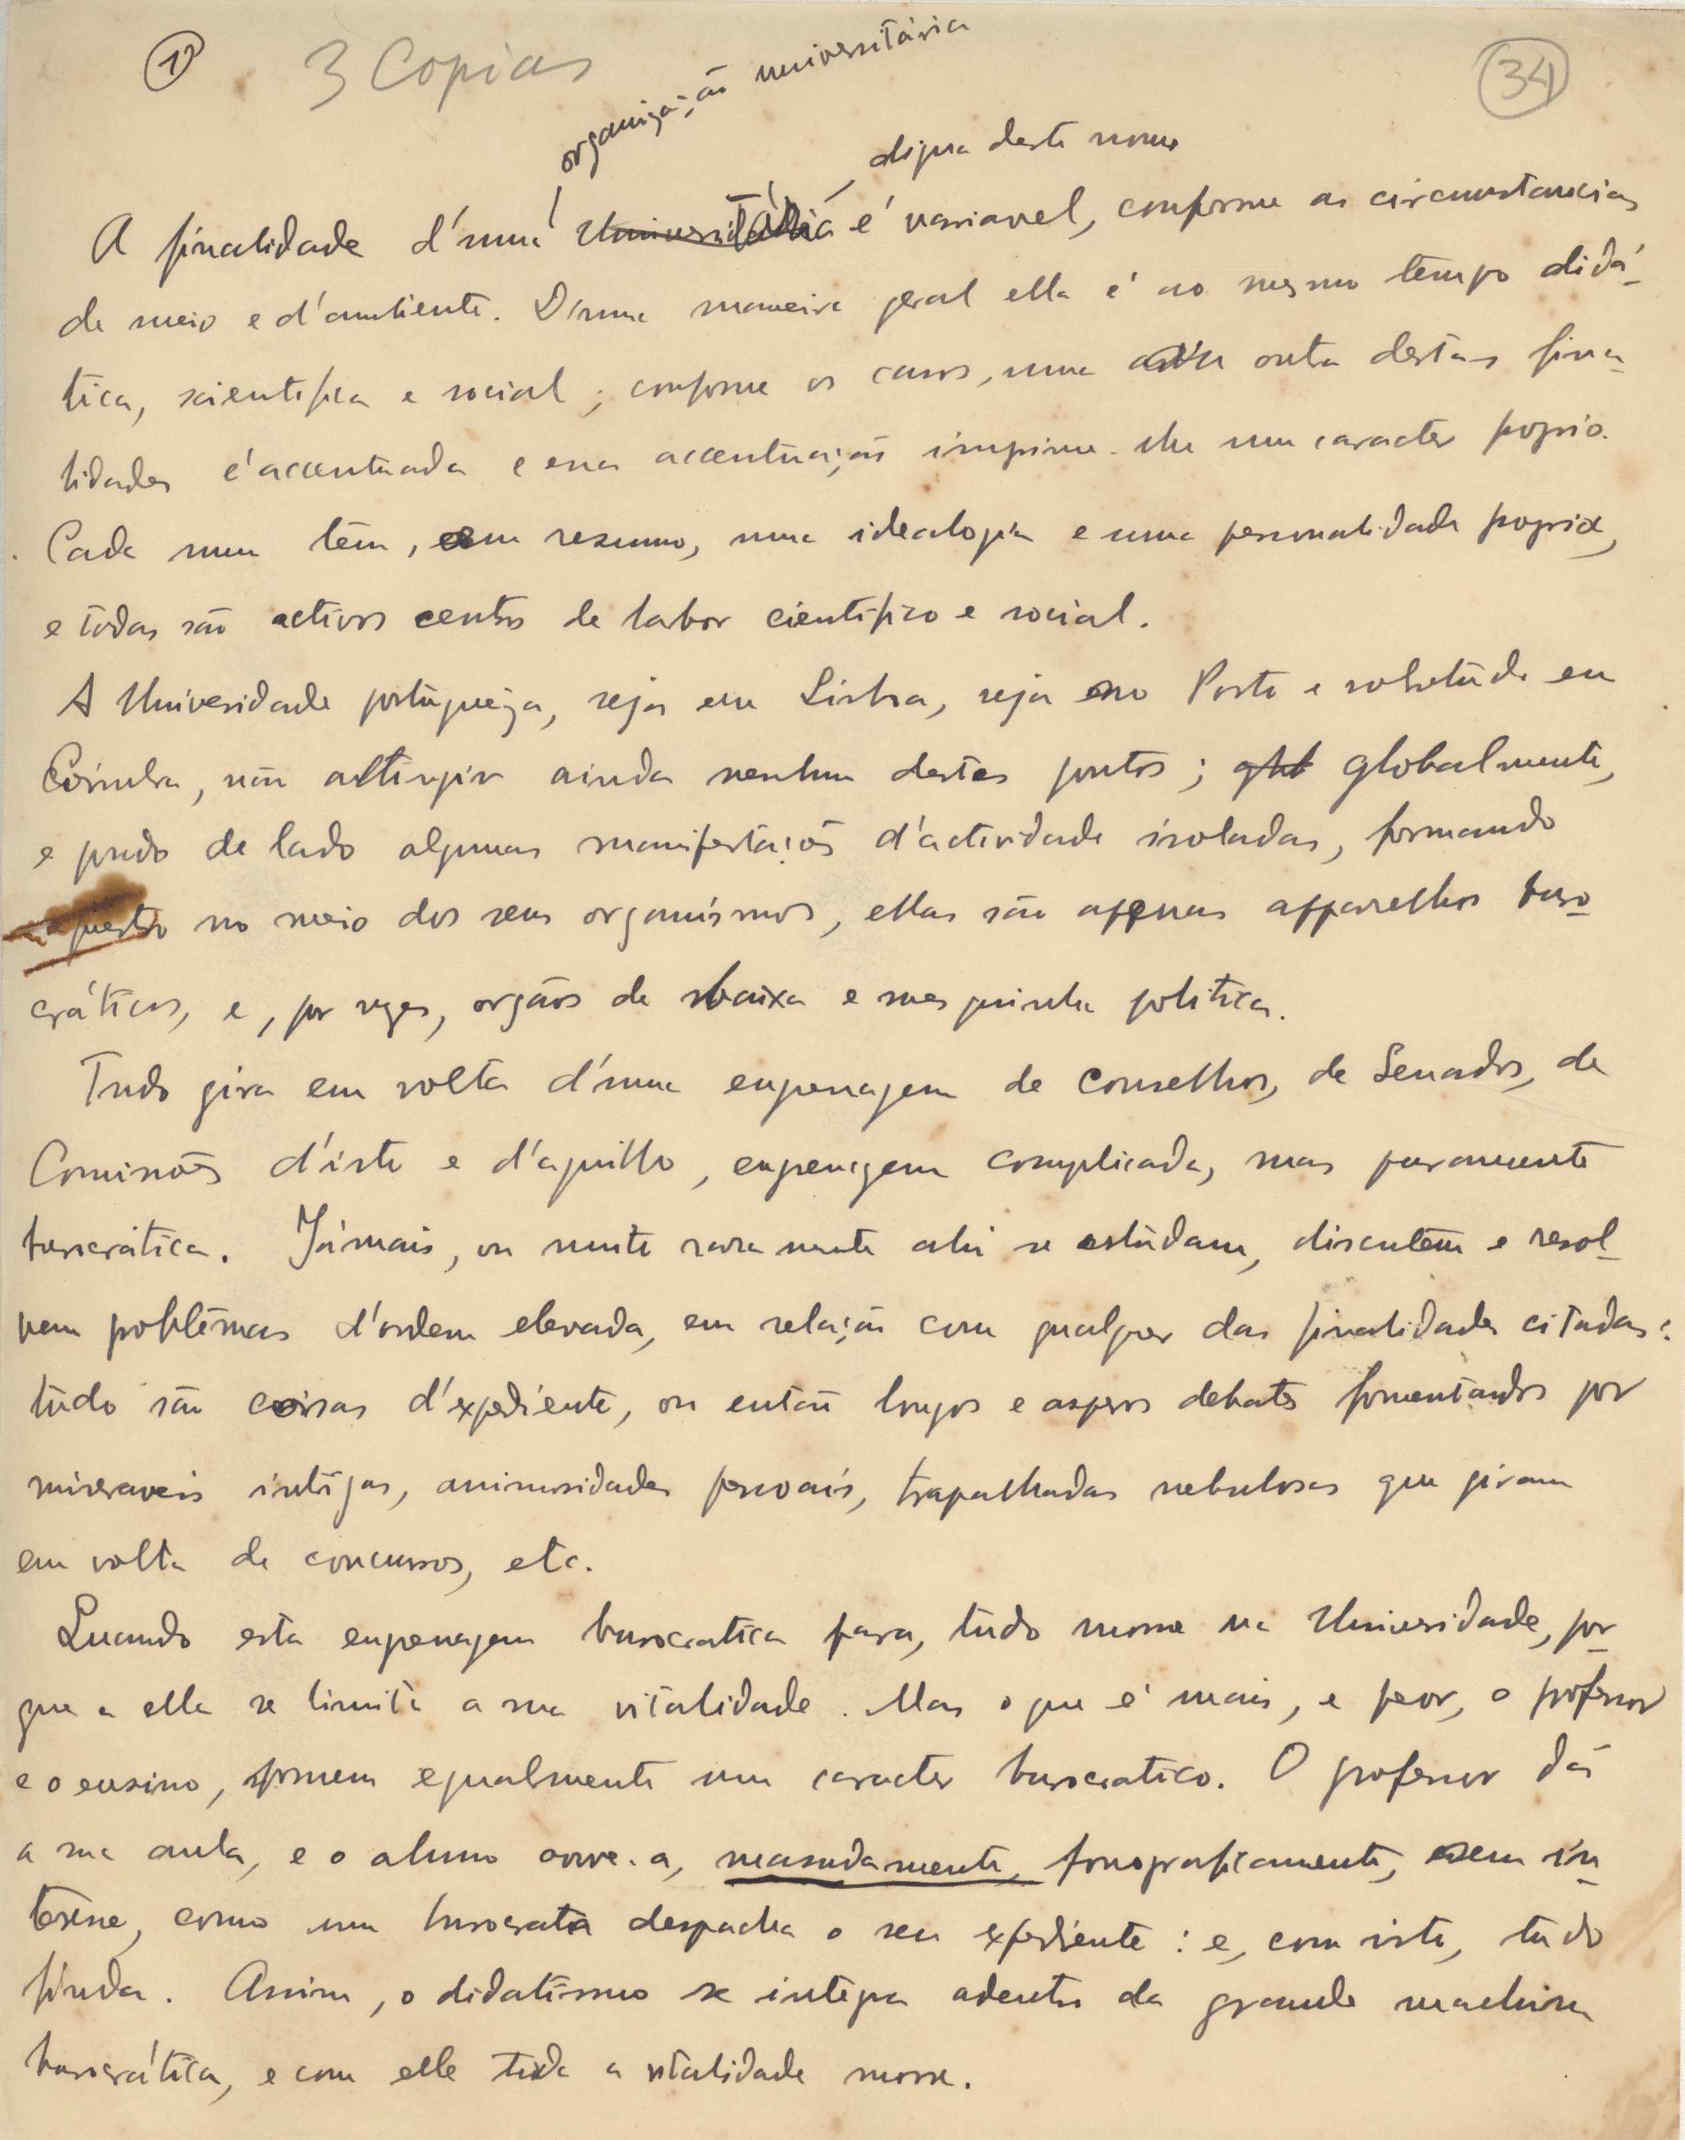 1º 3 Copias 34
organização universitária
, digna deste nome
A finalidade d'uma Universidade é variavel, conforme as circumstancias
de meio e d'ambiente. D'uma maneira geral ella é ao mesmo tempo didá-
tica, scientifica e social; conforme os casos, uma ou outra destas fina-
lidades é accentuada e essa accentuação imprime-lhe um caracter proprio.
Cada uma tem, em resumo, uma idealogia e uma personalidade propria,
e todas são activos centros de labor cientifico e social.
A Universidade portugueza, seja em Lisboa, seja no Porto e sobretudo em
Coimbra, não attingiu ainda nenhum destes pontos; glob globalmente,
e pondo de lado algumas manifestações d'actividade isoladas, formando
no meio dos seus organismos, ellas são apenas apparelhos buro-
cráticos, e, por vezes, orgãos de baixa e mesquinha politica.
Tudo gira em volta d'uma engrenagem de Conselhos, de Senados, de
Comissões d'isto e d'aquillo, engrenagem complicada, mas puramente
burocrática. Jámais, ou muito raramente ahi se estudam, discutem e resol-
vem problemas d'ordem elevada, em relação com qualquer das finalidades citadas:
tudo são coisas d'expediente, ou então longos e asperos debates fomentados por
miseraveis intrigas, animosidades pessoais, trapalhadas nebulosas que giram
em volta de concursos, etc.
Quando esta engrenagem burocratica para, tudo morre na Universidade, por-
que a ella se limita a sua vitalidade. Mas o que é mais, e peor, o professor
e o ensino, assumem egualmente um caracter burocratico. O professor dá
a sua aula, e o aluno ouve-a, massudamente, fonograficamente, sem in-
teresse, como um burocrata despacha o seu expediente: e, com isto, tudo
finda. Assim, o didatismo se integra adentro da grande machina
burocrática, e com elle toda a vitalidade morre.